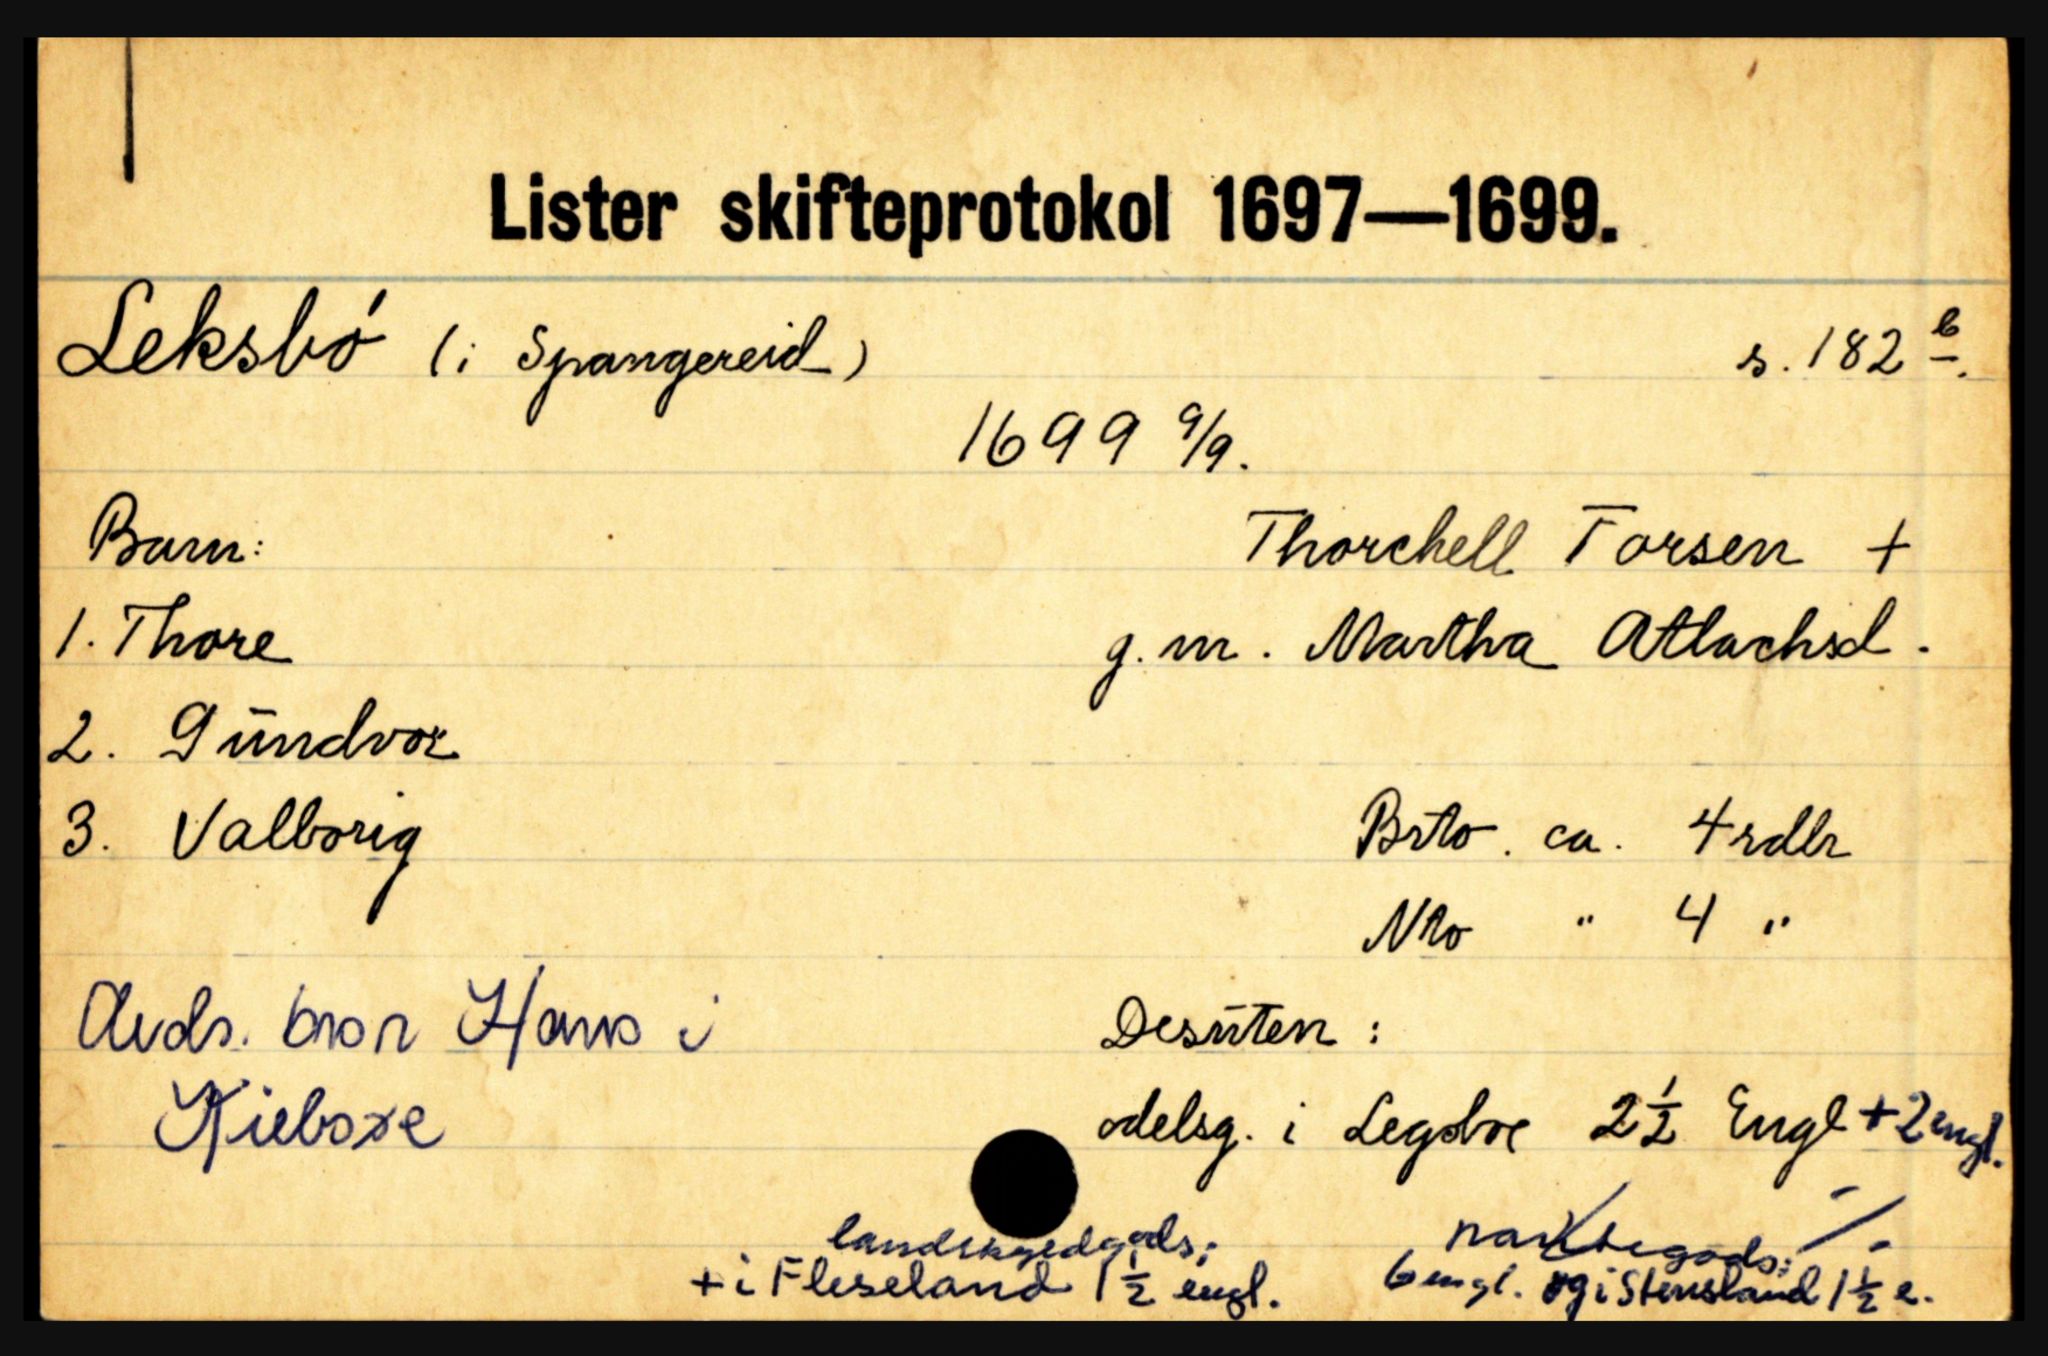 Lister skifteprotokol 1697—1699.
Leksbó (i Spangereid) s. 182 b.
1699 9/9.
Barn: Thorchell Torsen +
1. Thore g. m. Martha Atlachsd.
2. Gūndvor
3. Valborig Brto. ca. 4 rdlr
Nto " 4 "
Avds. bror Hans i Desūten:
Kieboxe odelsg. i Legsboe 2½ Engl + 2 engl.
landskyedgods;
+ i Fleseland 1½ engl. 6 engl. og i Stensland 1½ e.